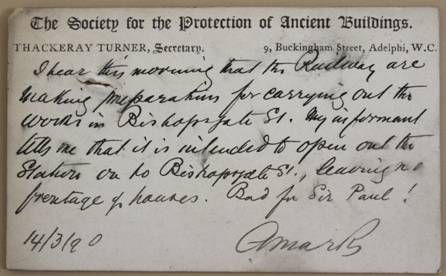 The Society for the Protection of Ancient Buildings.
THACKERAY TURNER, Secretary. 9, Buckingham Street, Adelphi, W.C.
I hear this morning that the Railway are
making preparations for carrying out the
works in Bishopsgate St. My informant
tells me that it is intended to open out the
Station on to Bishopsgate St., leaving no
frontage of houses. Bad for Sir Paul!
14/3/90